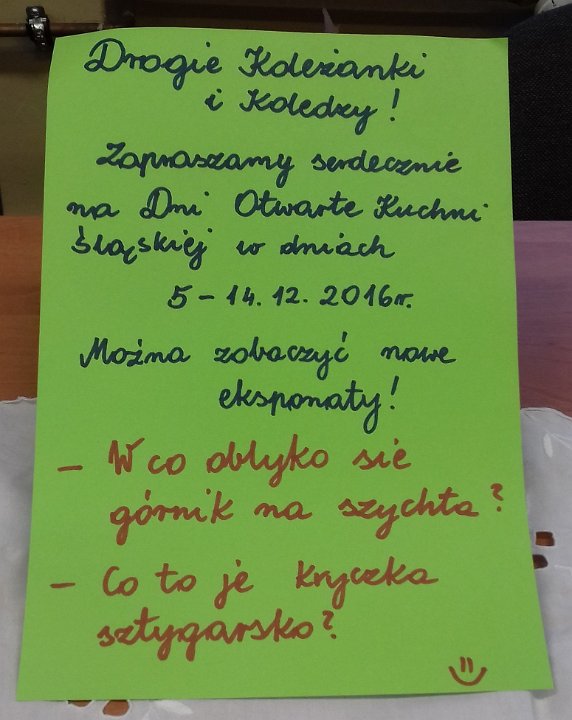 Drogie Koleżanki
i Koledzy!
Zapraszamy serdecznie
na Dni Otwarte Kuchni
śląskiej w dniach
5-14.12.2016r.
Można zobaczyć nowe
eksponaty!
- W co oblyko sie
górnik na szychta?
- Co to je kryczka
sztygarsko?